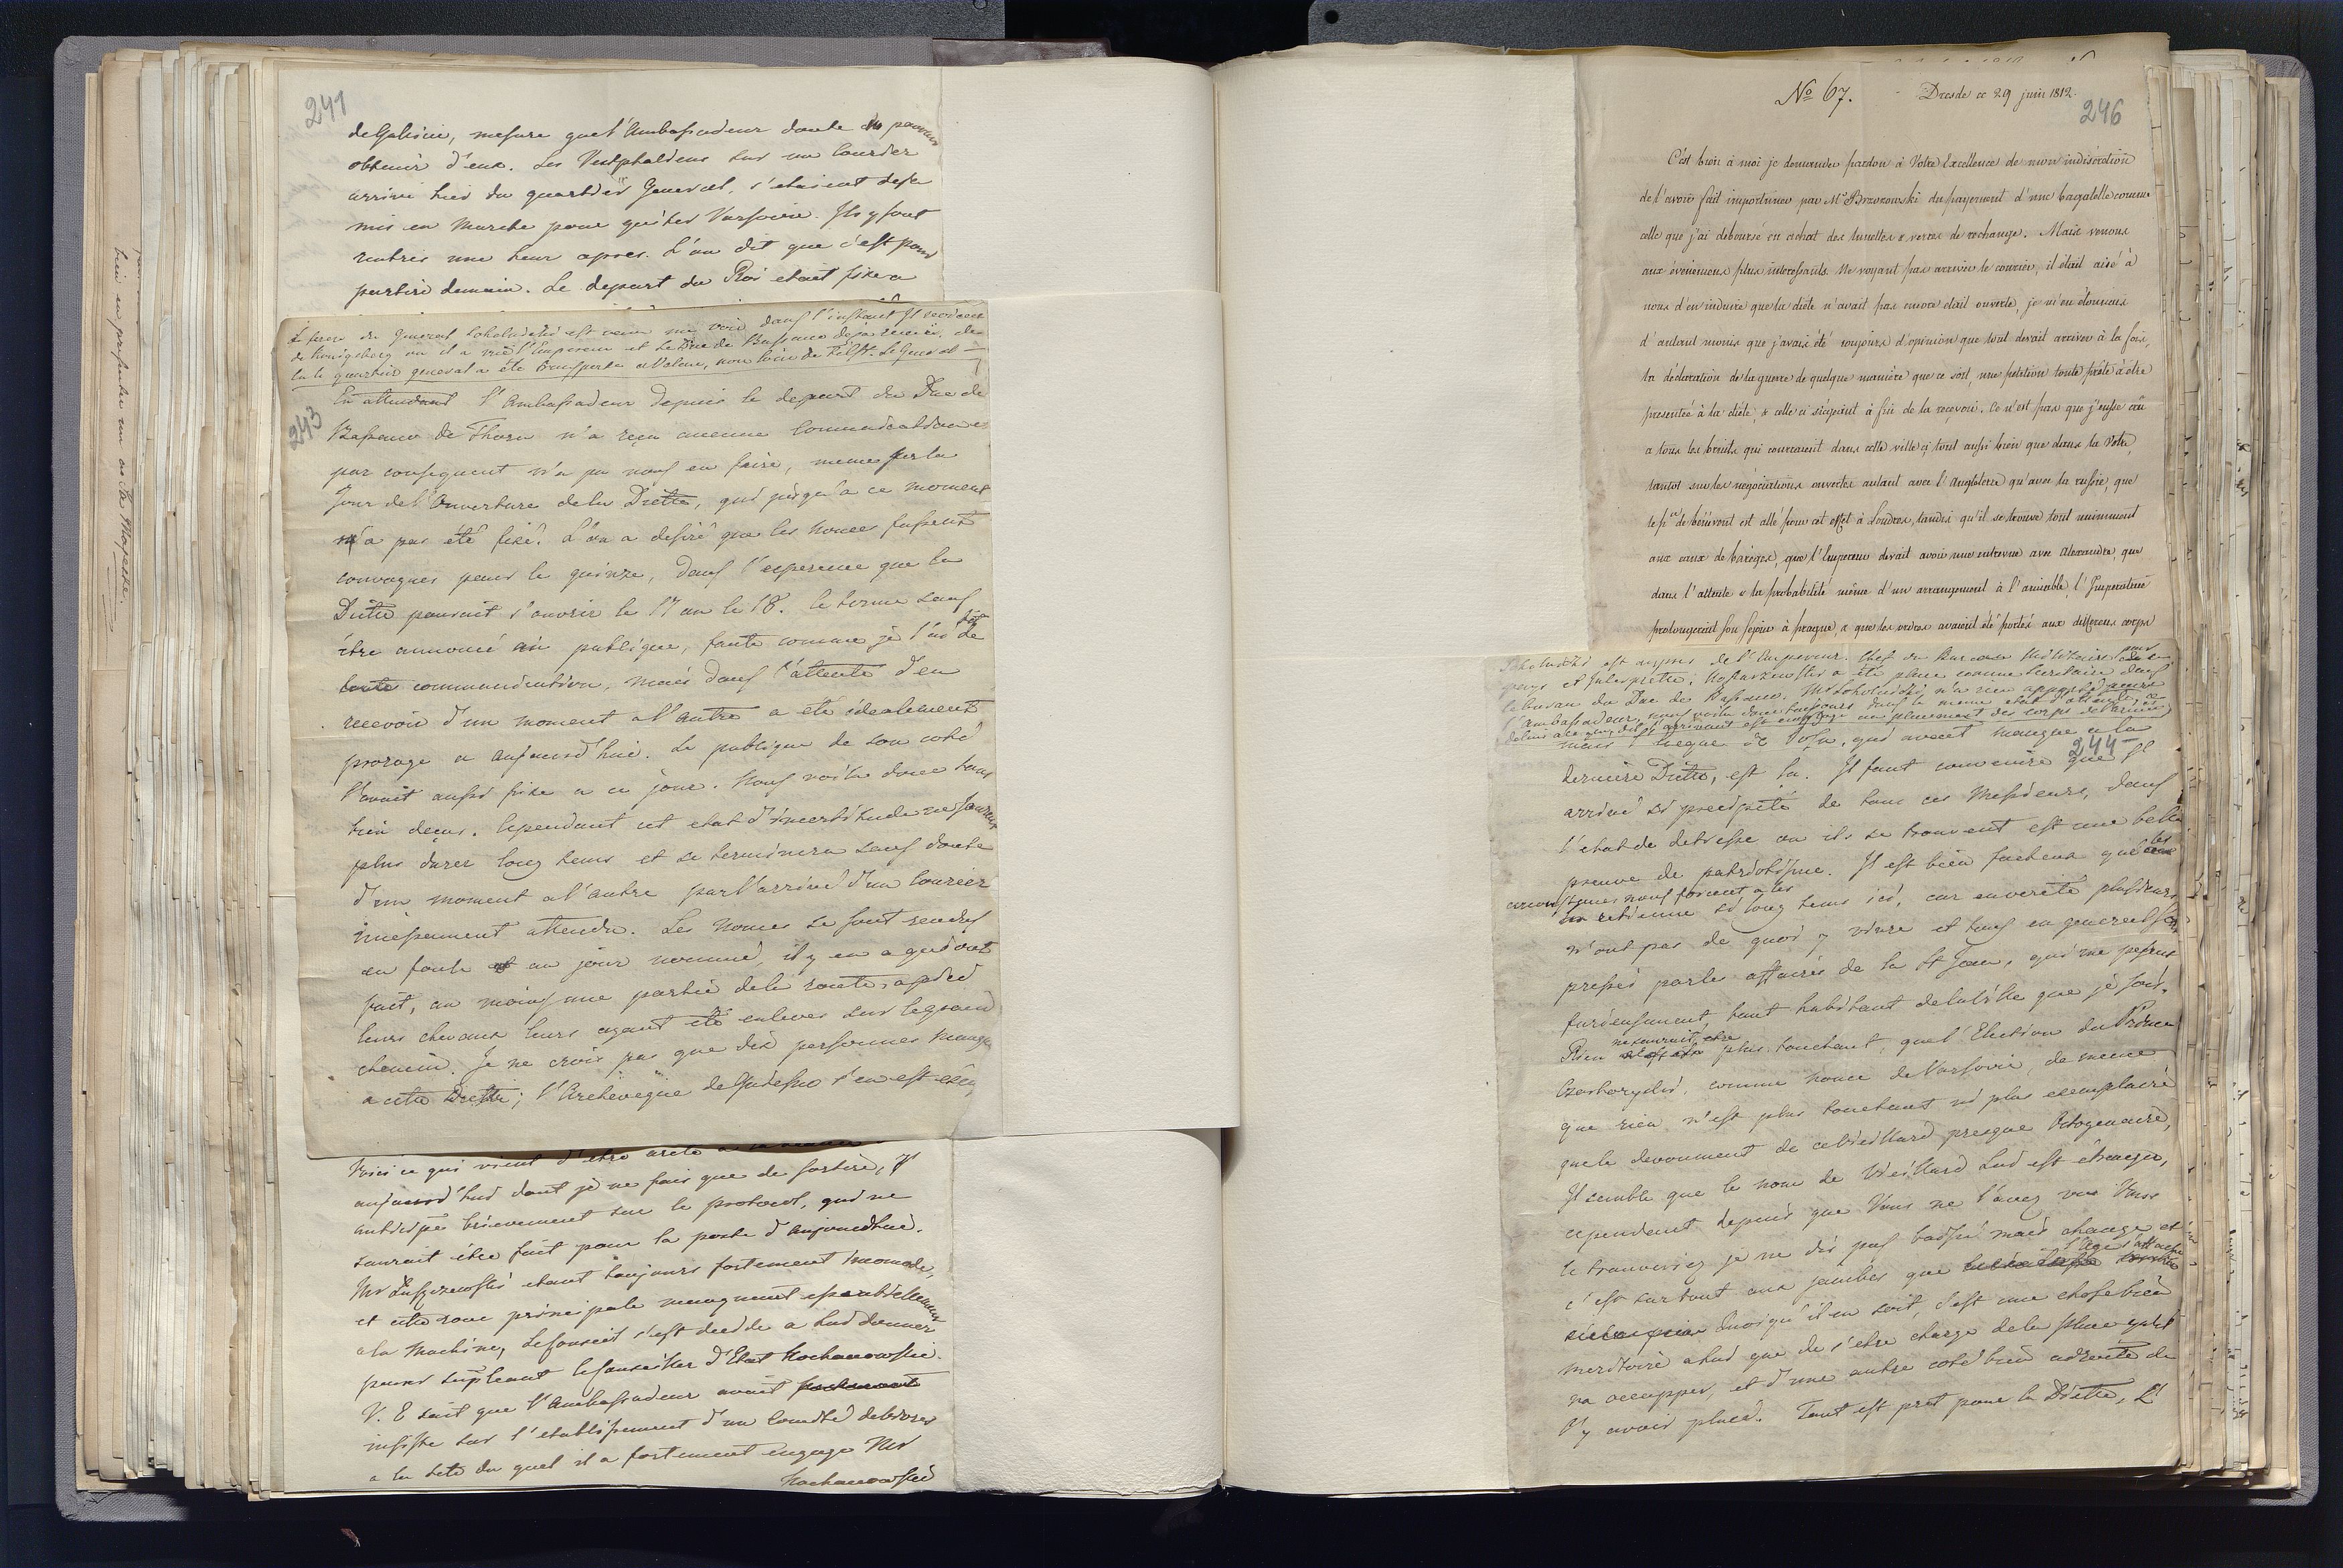 241
de Galicie, mesure que l'Ambassadeur doute de pouvoir
obtenir d'eux. Les Vestphaliens sur un Courier
arrivé hier du quartier General, s'etaient deja
mis en Marche pour quitter Varsovie. Ils y sont
rentrés une heur apres. L'on dit que c'est pour
partire demain. Le depart du Roi etait fixé a
Le frere du General Sokolnicki est venu me voir dans l'instant Il revient
de Königsberg ou il a vu l'Empereur et le Duc de Bassano deja réunis. de
la le quartier general a été transporté a Velau, non loin de Tilsit. Le General
243
En attendant l'Ambassadeur depuis le depart du Duc de
Bassano de Thorn n'a reçu aucune Communication e
par consequent n'a pu nous en faire, meme sur le
Jour de l'Ouverture de la Diette, qui jusqu'a ce moment
n'a pas été fixé. L'on a desiré que les Nonces fussent
convoqués pour le quinze, dans l'esperence que la
Diette pourrait s'ouvrir le 17 ou le 18. Ce terme sans
être annoncé au publique, faute comme je l'ai dit de
toute communication, mais dans l'attente d'en
recevoir d'un moment a l'autre a été idealement
prorogé a aujourd'hui. Le publique de son coté
l'avait aussi fixé a ce jour. Nous voila donc tous
bien deçus. Cependant cet etat d'incertitude ne saurait
plus durer long tems et se terminera sans doute
d'un moment a l'autre par l'arrivé d'un Courier
incessament attendu. Les Nonces se sont rendus
en foule au jour nommé, il y en a qui ont
fait, au moins une partie de la route, a pied
leurs chevaux leurs ayant été enlevés sur le grand
chemin. Je ne crois pas que dix personnes manque
a cette Diette; l'Archevêque de Gniesno s'en est excu
Voici ce qui vient d'etre areté a
aujourd'hui dont je ne fais que de sortire, J'
anticipe brievement sur le protocol, qui ne
saurait être fait pour la poste d'aujourdhui.
Mr Luszczewski etant toujours fortement incomodé,
et cette roue principale manquant essentiellement
a la Machine, le Conseil s'est decidé a lui donner
pour supleant le Conseiller d'Etat Kochanowski.
V. E sait que l'Ambassadeur avait
insisté sur l'etablissement d'un Comité de vivres
a la tete du quel il a fortement engagé Mr
Kochanowski
bien en presenter un a Sa Majesté.
No 67.
Dresde ce 29 juin 1812.
246
C'est bien à moi je demander pardon à Votre Excellence de mon indiscretion
de l'avoir fait importuner par Mr Brzozowski du payement d'une bagatelle comme
celle que j'ai deboursé en achat des lunettes & verres de rechange. Mais venons
aux événemens plus interessants. Ne voyant pas arriver le courier, il était aisé à
nous d'en induire que la diète n'avait pas encore était ouverte, je m'en étonnais
d'autant moins que j'avais été toujours d'opinion que tout devait arriver à la fois,
la déclaration de la guerre de quelque manière que ce soit, une petition toute prête à être
presentée à la diète, & celle ci siégeant à fin de la recevoir. Ce n'est pas que j'eusse crû
a tous les bruits qui couraient dans cette ville ci tout aussi bien que dans la Votre,
tantot sur les négociations ouvertes autant avec l'Angleterre qu'avec la russie, que
le pce de bénévent est allé pour cet effet à Londres, tandis qu'il se trouve tout uniment
aux eaux de barèges, que l'Empereur devait avoir une entrevue avec Alexandre, que
dans l'attente & la probabilité même d'un arrangement à l'amiable, l'Imperatrice
prolongerait son sejour à prague, & que les ordres avaient été portés aux differens corps
Sokolnicki est aupres de l'Empereur. Chef du Bureau Militaire pour
gens et Interprette; Kossarzewski a été placé comme Secretaire dans
le bureau du Duc de Bassano. Mr Sokolnicki n'a rien apporté pour
l'Ambassadeur, nous voila donc toujours dans le meme etat d'attente, ce
mais l'eveque de Voln, qui avait manqué a la
244
derniere Diette, est la. Il faut convenire que l'
arrivé si precipité de tous ces Messieurs, dans
l'etat de detresse ou ils se trouvent est une belle
preuve de patriotisme. Il est bien facheux que les
circonstances nous forcent a les
retienne si long tems ici, car en verité plusieurs
n'ont pas de quoi y vivre et tous en general sont
pressés par les affaires de la St Jean, qui me pesent
furieusement tout habitant de la ville que je sois.
Rien ne saurait etre plus touchant, que l'Election du Prince
Czartoryski, comme nonce de Varsovie, de meme
que rien n'est plus touchant ni plus exemplaire
que le devouement de ce Vieillard presque Octogenaire,
Il semble que le nom de Vieillard lui est etranger,
cependant depuis que Vous ne l'avez vu Vous
le trouveriez je ne dis pas baissé mais changé et
c'est sur tout aux jambes que l'age s'attache
Quoiqu'il en soit, c'est une chose bien
meritoire a lui que de s'etre chargé de la place qu'il
va occupper, et d'une autre coté bien adroite de
l'y avoir placé. Tout est pret pour la Diette, L'